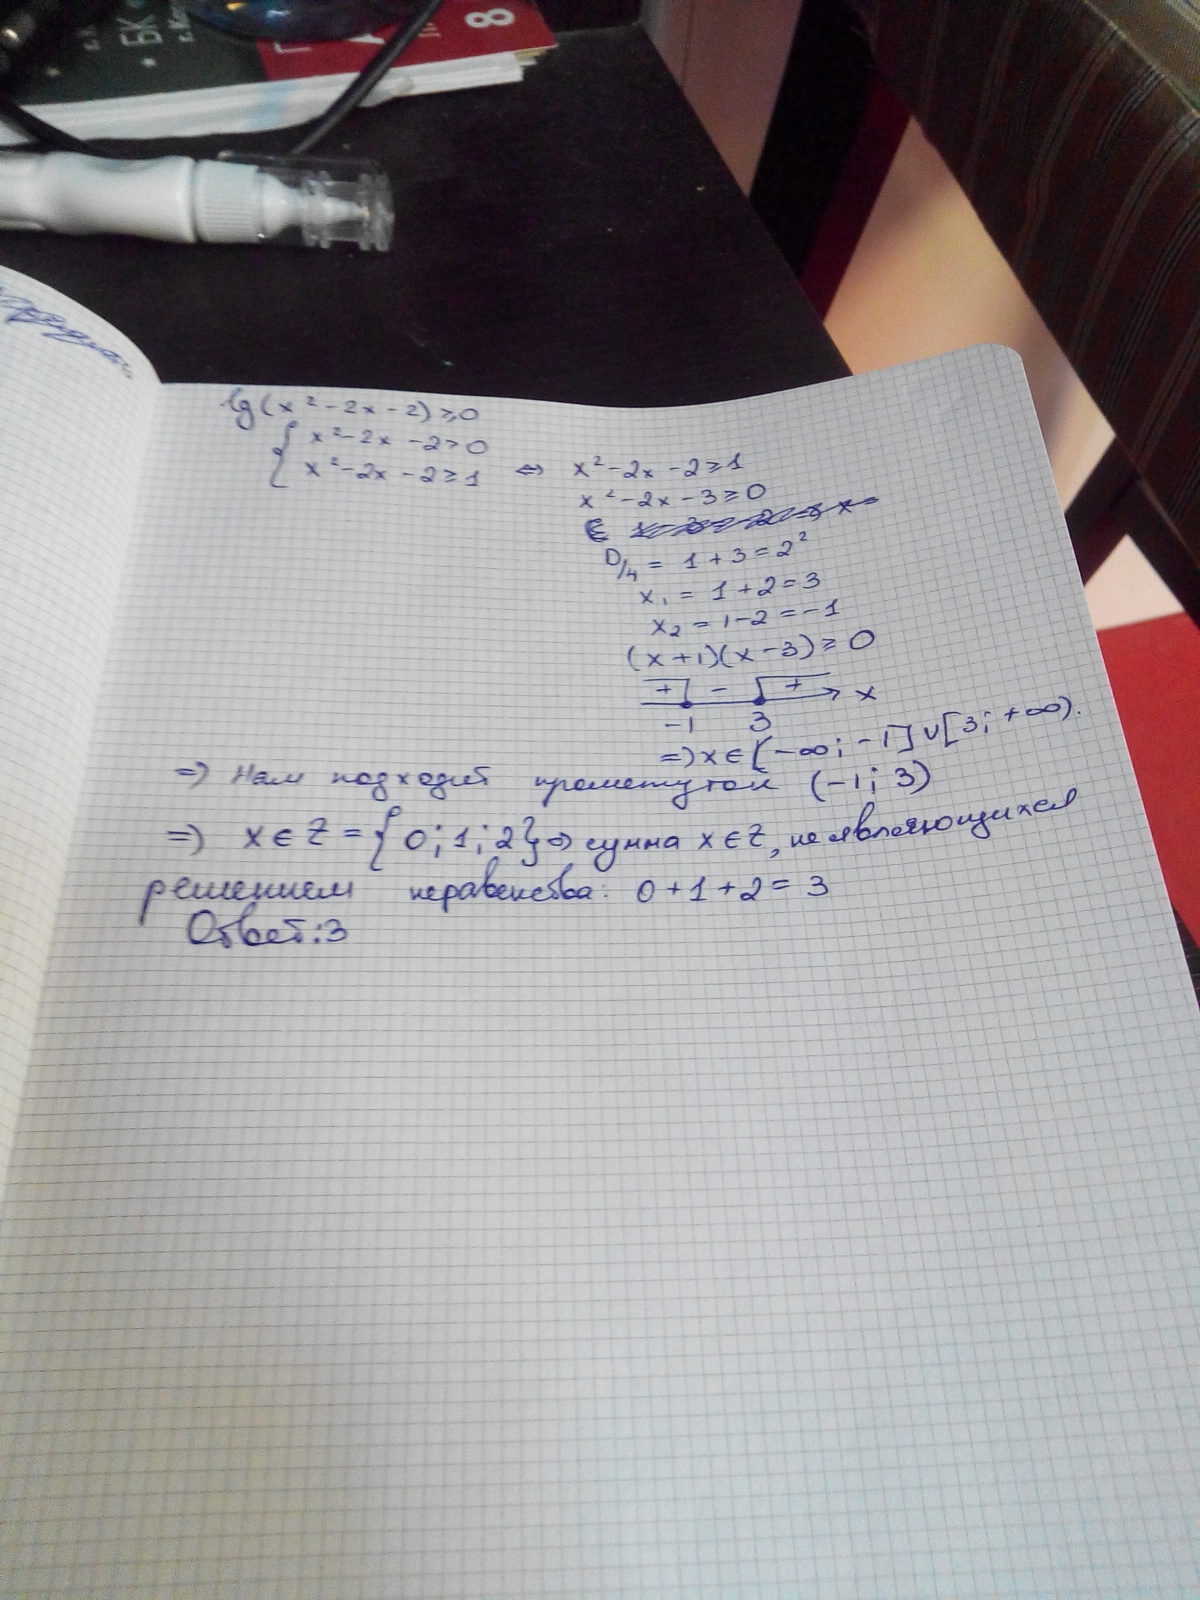 8
БК
lg(x² - 2x - 2) ≥ 0
{ x² - 2x - 2 > 0
x² - 2x - 2 ≥ 1 ⇔ x² - 2x - 2 ≥ 1
x² - 2x - 3 ≥ 0
D/4 = 1 + 3 = 2²
x₁ = 1 + 2 = 3
x₂ = 1 - 2 = -1
(x + 1)(x - 3) ≥ 0
+ - + x
-1 3
=> x ∈ [-∞; -1] ∪ [3; +∞).
=> Нам подходит промежуток (-1; 3)
=> x ∈ Z = {0; 1; 2} => сумма x ∈ Z, не являющихся
решением неравенства: 0 + 1 + 2 = 3
Ответ: 3